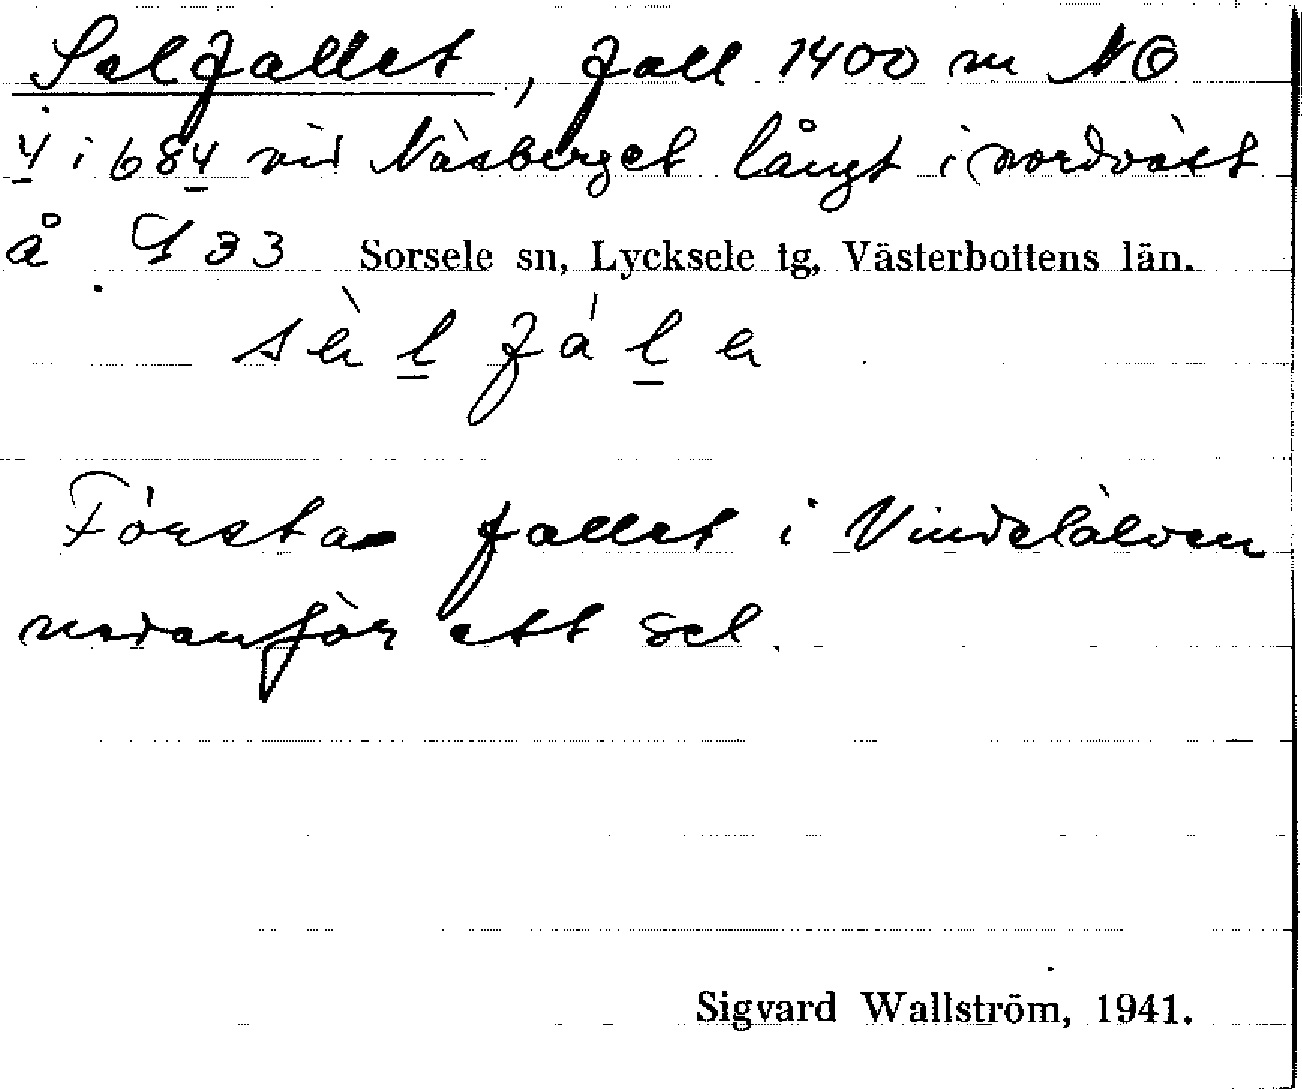 Selfallet, fall 1400 m NO
4 i 684 vid Näsberget långt i nordväst
å 933 Sorsele sn, Lycksele tg, Västerbottens län.
Första fallet i Vindelälven
nedanför ett sel.
Sigvard Wallström, 1941.